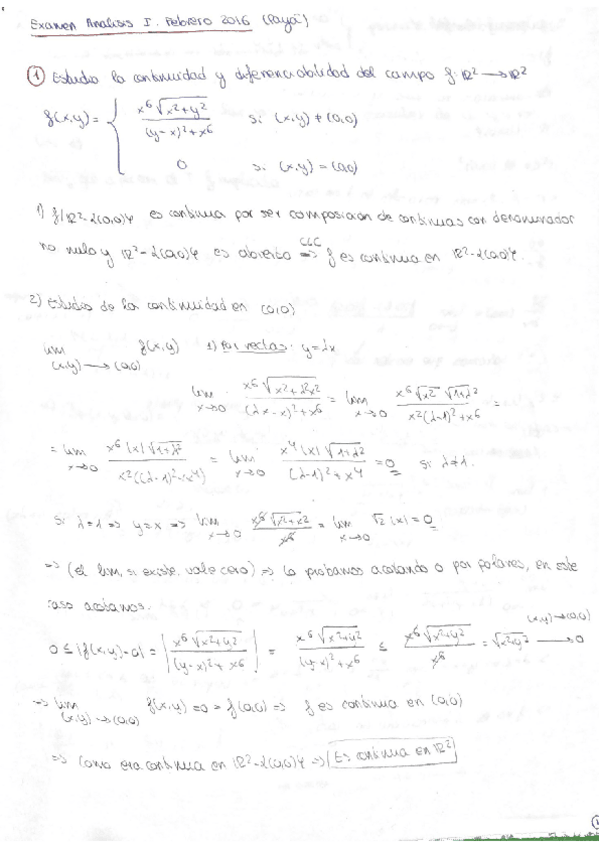 Examen Analisis I. Febrero 2016 (Payá)
① Estudia la continuidad y diferenciabilidad del campo f: ℝ² → ℝ²
f(x,y) = { x⁶√(x²+y²) / ((y-x)²+x⁶) si (x,y) ≠ (0,0)
0 si (x,y) = (0,0)
1) f|ℝ²-{(0,0)} es continua por ser composición de continuas con denominador
no nulo y ℝ²-{(0,0)} es abierto ⇒ (CLC) f es continua en ℝ²-{(0,0)}.
2) Estudio de la continuidad en (0,0)
lim (x,y)→(0,0) f(x,y) 1) Por rectas: y=λx
lim x→0 x⁶√(x²+λ²x²) / ((λx-x)²+x⁶) = lim x→0 x⁶√x² √(1+λ²) / (x²(λ-1)²+x⁶) =
= lim x→0 x⁶|x|√(1+λ²) / (x²((λ-1)²+x⁴)) = lim x→0 x⁴|x|√(1+λ²) / ((λ-1)²+x⁴) = 0 si λ≠1.
si λ=1 ⇒ y=x ⇒ lim x→0 x⁶√(x²+x²) / x⁶ = lim x→0 √2 |x| = 0
⇒ (el lim, si existe, vale cero) ⇒ Lo probamos acotando o por polares, en este
caso acotamos.
0 ≤ |f(x,y)-0| = |x⁶√(x²+y²) / ((y-x)²+x⁶)| = x⁶√(x²+y²) / ((y-x)²+x⁶) ≤ x⁶√(x²+y²) / x⁶ = √(x²+y²) → 0 (x,y)→(0,0)
⇒ lim (x,y)→(0,0) f(x,y) = 0 = f(0,0) ⇒ f es continua en (0,0)
⇒ Como era continua en ℝ²-{(0,0)} ⇒ Es continua en ℝ²